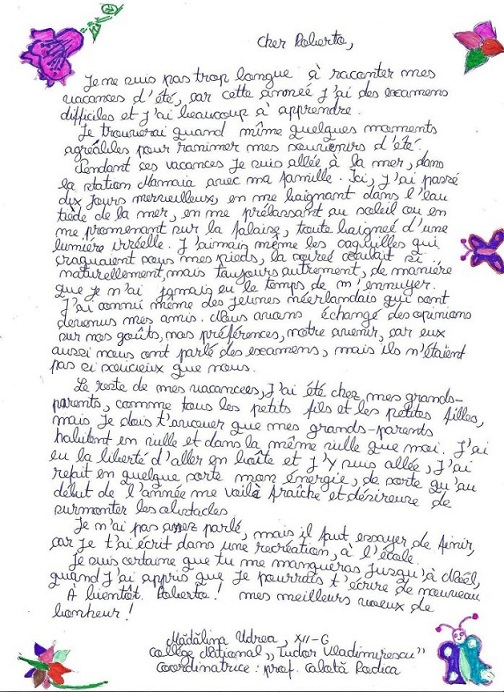 Cher Roberto,
Je ne suis pas trop longue à raconter mes
vacances d'été, car cette année j'ai des examens
difficiles et j'ai beaucoup à apprendre.
Je trouverai quand même quelques moments
agréables pour ranimer mes souvenirs d'été.
Pendant ces vacances je suis allée à la mer, dans
la station Mamaia avec ma famille. Ici, j'ai passé
dix jours merveilleux, en me baignant dans l'eau
tiède de la mer, en me prélassant au soleil ou en
me promenant sur la falaise, toute baignée d'une
lumière irréelle. J'aimais même les coquilles qui
craquaient sous mes pieds, la soirée coulait si
naturellement, mais toujours autrement, de manière
que je n'ai jamais eu le temps de m'ennuyer.
J'ai connu même des jeunes néerlandais qui sont
devenus mes amis. Nous avons échangé des opinions
sur nos goûts, nos préférences, notre avenir, car eux
aussi nous ont parlé des examens, mais ils n'étaient
pas si soucieux que nous.
Le reste de mes vacances, j'ai été chez mes grands-
parents, comme tous les petits fils et les petites filles,
mais je dois t'avouer que mes grands-parents
habitent en ville et dans la même ville que moi. J'ai
eu la liberté d'aller en boîte et j'y suis allée, j'ai
refait en quelque sorte mon énergie, de sorte qu'au
début de l'année me voilà fraîche et désireuse de
surmonter les obstacles.
Je n'ai pas assez parlé, mais il faut essayer de finir,
car je t'ai écrit dans une recréation, à l'école.
Je suis certaine que tu me manqueras jusqu'à Noël,
quand j'ai appris que je pourrais t'écrire de nouveau
À bientôt, Roberto! mes meilleurs voeux de
bonheur!
Mădălina Udrea, XII-G
Collège National „Tudor Vladimirescu"
Coordinatrice: prof. Calotă Rodica